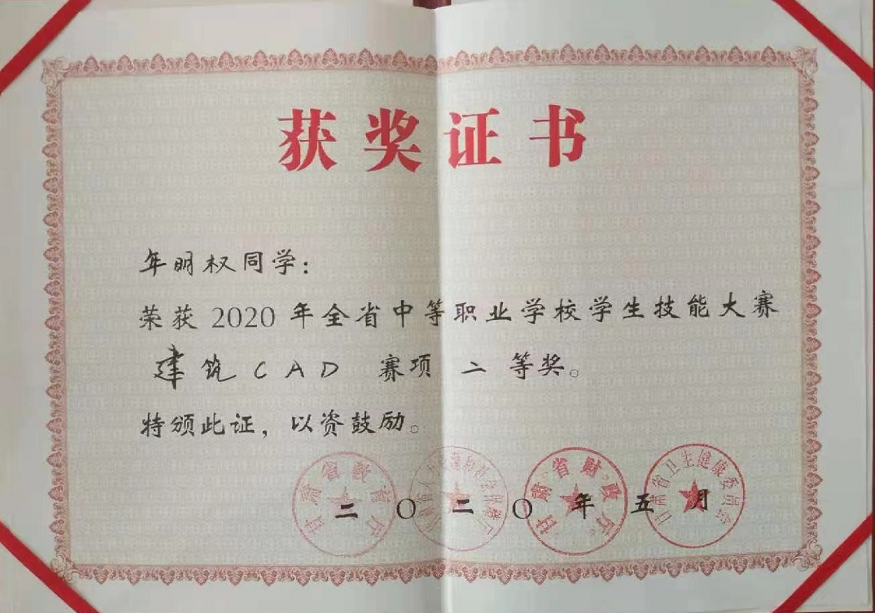 获奖证书
年明权同学：
荣获 2020 年全省中等职业学校学生技能大赛
建筑CAD 赛项 二 等奖。
特颁此证，以资鼓励。
甘肃省教育厅
甘肃省财政厅
甘肃省卫生健康委员会
二〇二〇年五月